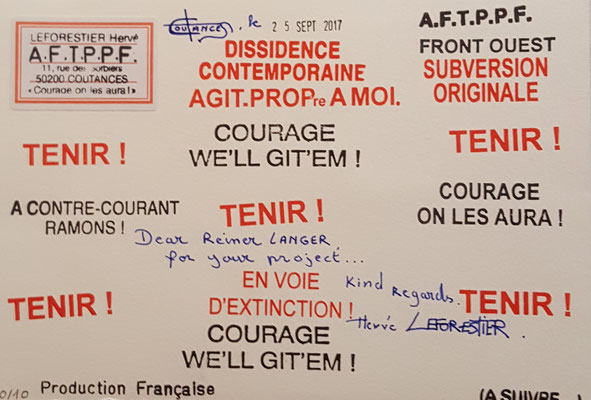 LEFORESTIER Hervé
A.F.T.P.P.F.
11, rue des Sorbiers
50200 COUTANCES
« Courage on les aura ! »
Coutances, le 25 SEPT 2017
DISSIDENCE
CONTEMPORAINE
AGIT.PROPre A MOI.
A.F.T.P.P.F.
FRONT OUEST
SUBVERSION
ORIGINALE
TENIR !
COURAGE
WE'LL GIT'EM !
TENIR !
A CONTRE-COURANT
RAMONS !
TENIR !
COURAGE
ON LES AURA !
Dear Reiner LANGER,
for your project...
TENIR !
EN VOIE
D'EXTINCTION !
Kind Regards.
Hervé LEFORESTIER.
TENIR !
COURAGE
WE'LL GIT'EM !
0/10 Production Française
(A SUIVRE...)